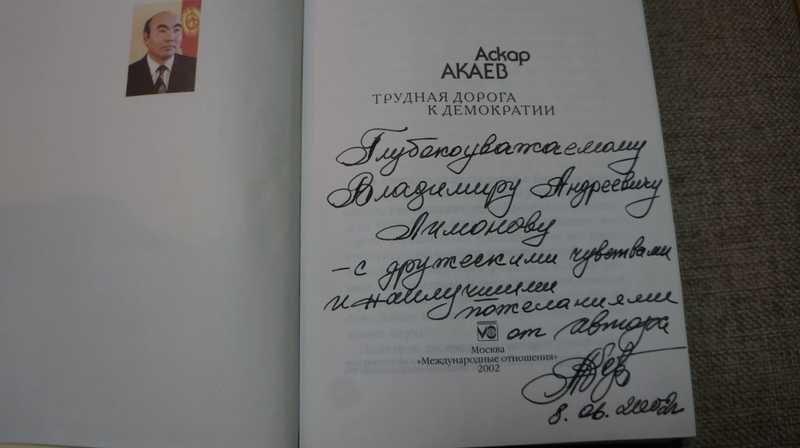 Аскар
АКАЕВ
ТРУДНАЯ ДОРОГА
К ДЕМОКРАТИИ
Глубокоуважаемому
Владимиру Андреевичу
Лимонову
– с дружескими чувствами
и наилучшими
пожеланиями
от автора
Москва
«Международные отношения»
2002
8.06.2002г